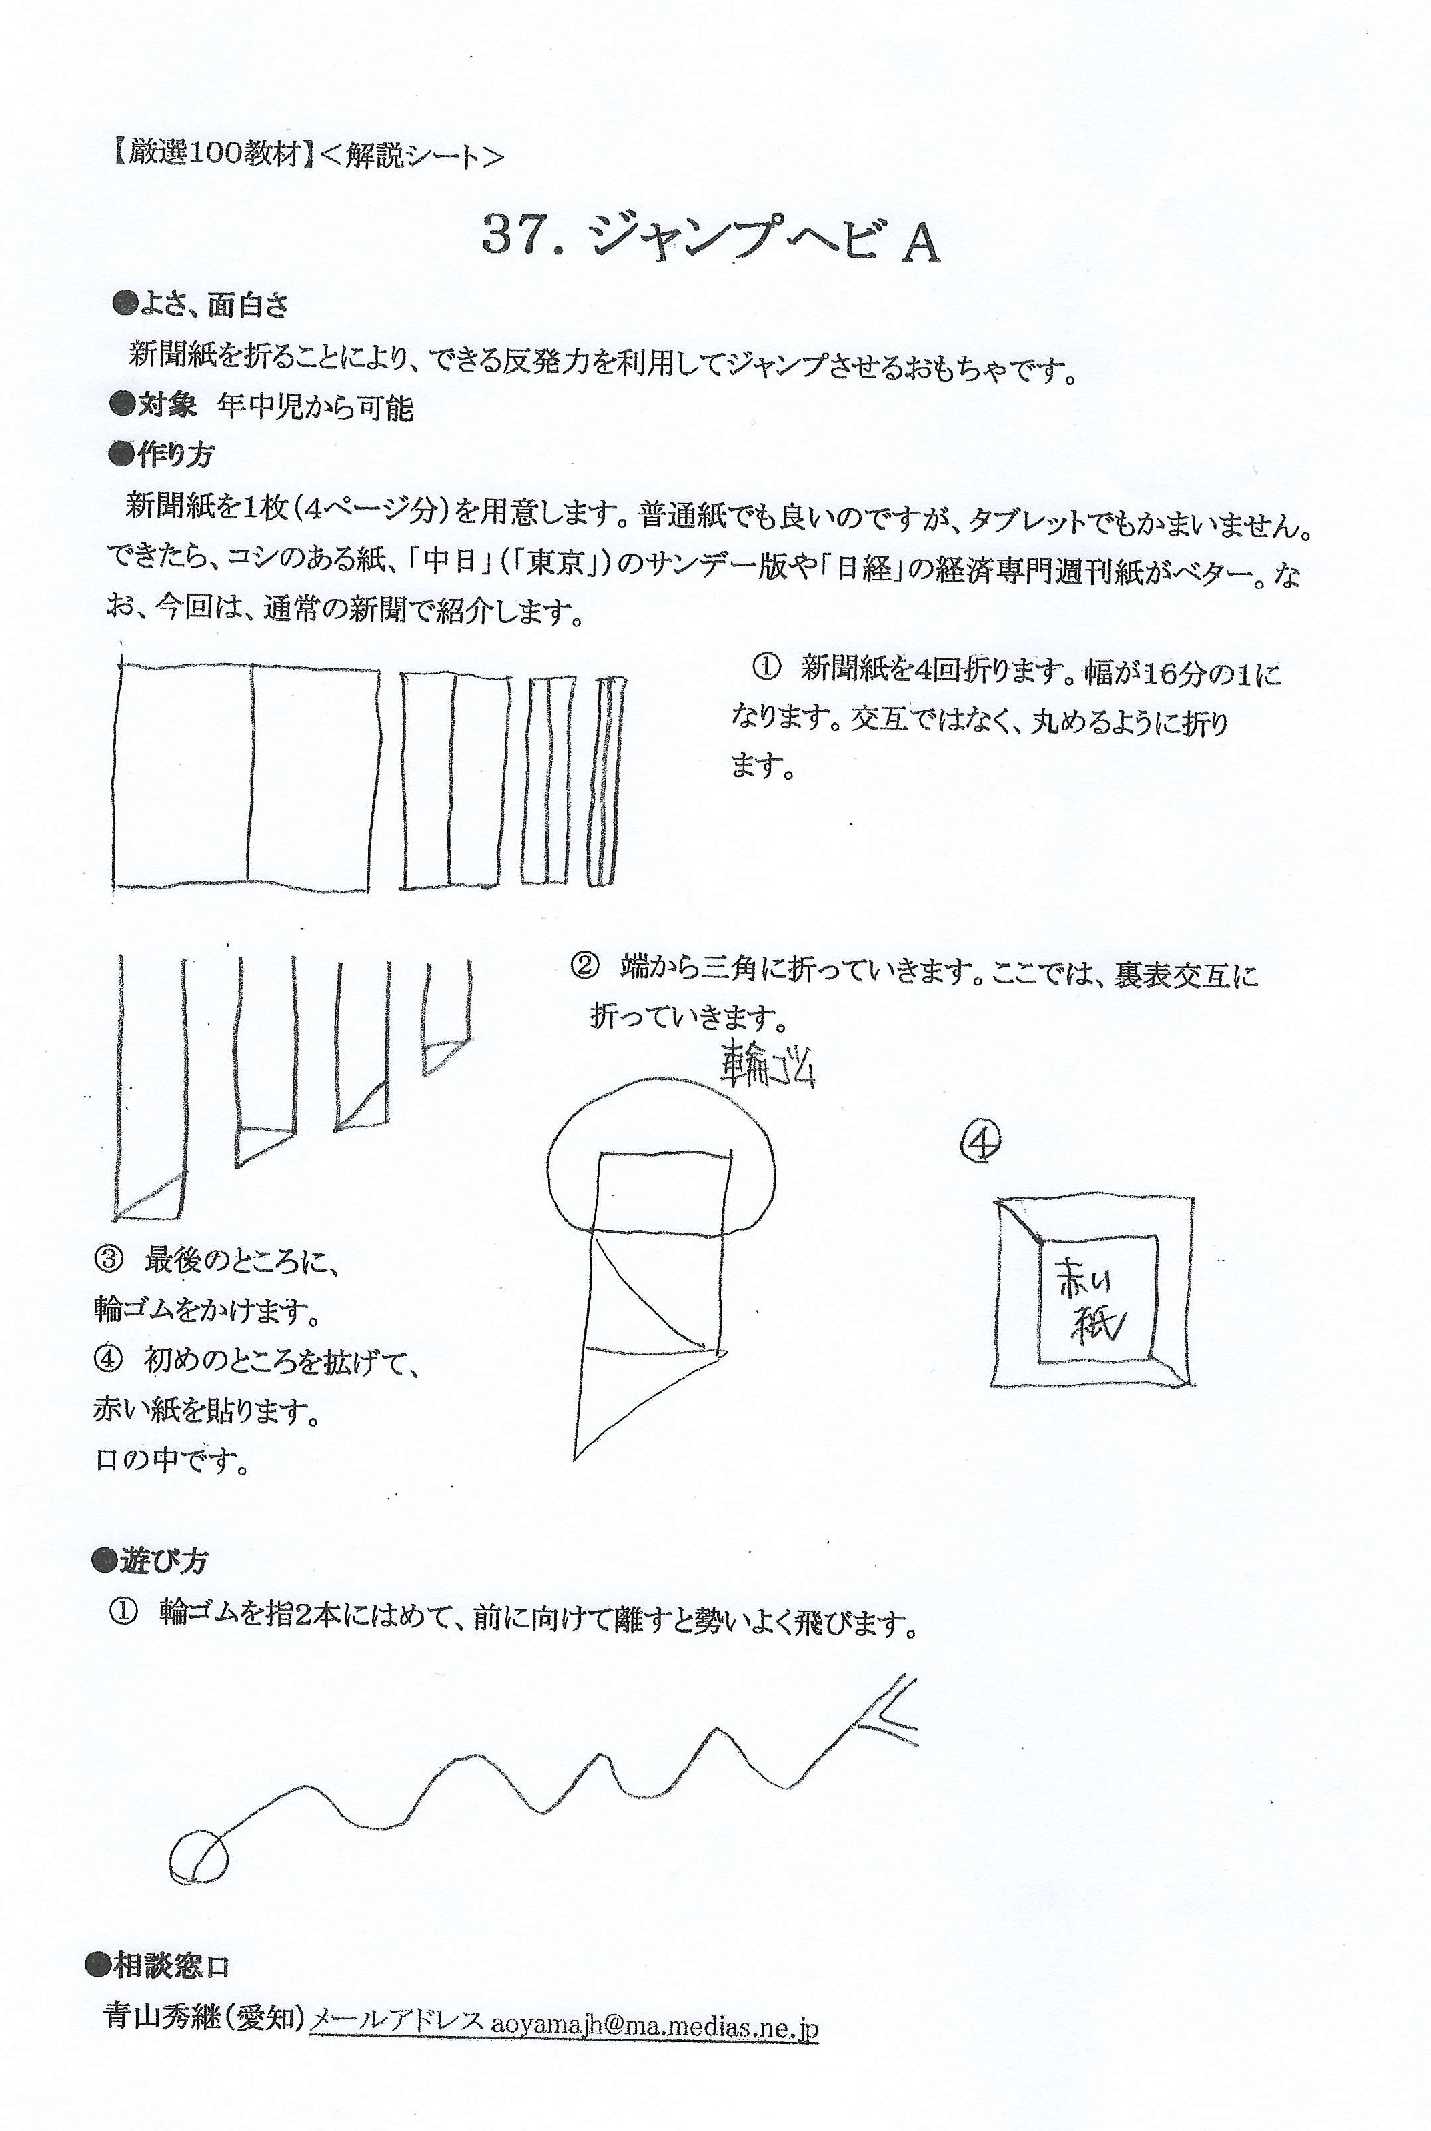 【厳選100教材】＜解説シート＞
37．ジャンプヘビA
●よさ、面白さ
新聞紙を折ることにより、できる反発力を利用してジャンプさせるおもちゃです。
●対象　年中児から可能
●作り方
新聞紙を1枚（4ページ分）を用意します。普通紙でも良いのですが、タブレットでもかまいません。
できたら、コシのある紙、「中日」（「東京」）のサンデー版や「日経」の経済専門週刊紙がベター。な
お、今回は、通常の新聞で紹介します。
①　新聞紙を4回折ります。幅が16分の1に
なります。交互ではなく、丸めるように折り
ます。
②　端から三角に折っていきます。ここでは、裏表交互に
折っていきます。
輪ゴム
④
赤い
紙
③　最後のところに、
輪ゴムをかけます。
④　初めのところを拡げて、
赤い紙を貼ります。
口の中です。
●遊び方
①　輪ゴムを指2本にはめて、前に向けて離すと勢いよく飛びます。
●相談窓口
青山秀継（愛知）メールアドレス aoyamajh@ma.medias.ne.jp